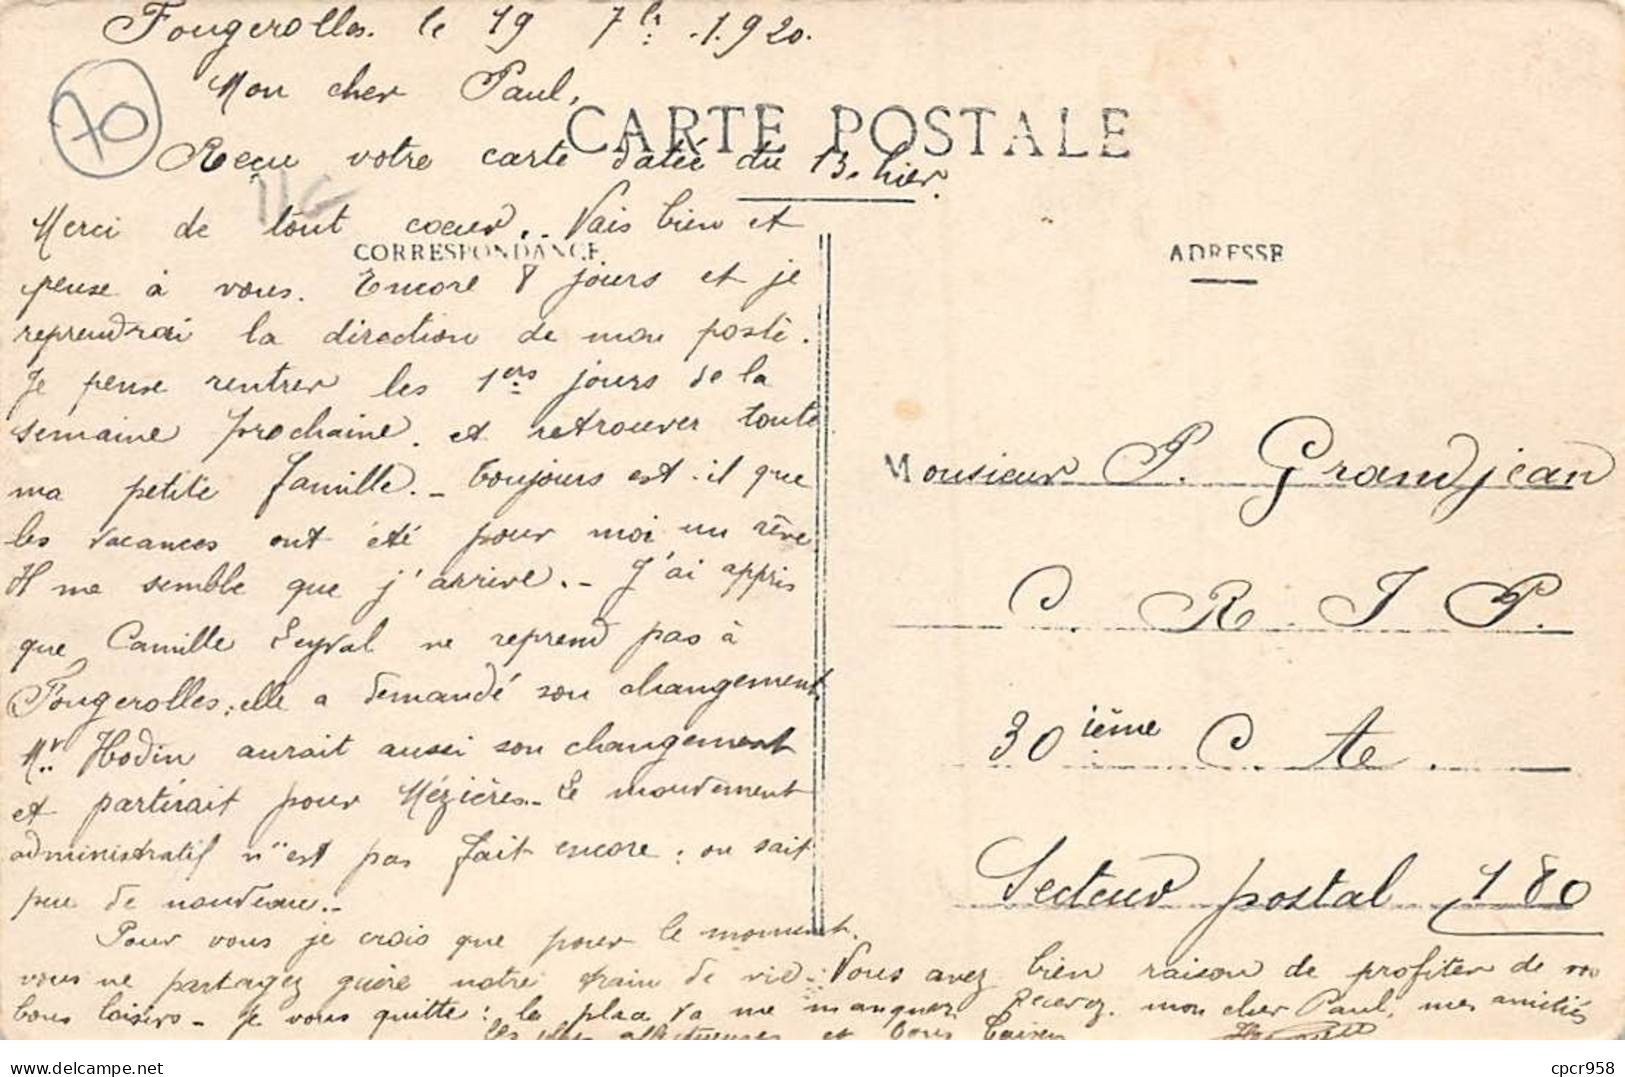 Fougerolles. le 19 7bre 1920.
Mon cher Paul,
70
CARTE POSTALE
Reçu votre carte datée du 13. hier.
Merci de tout coeur. Vais bien et
CORRESPONDANCE
pense à vous. Encore 8 jours et je
reprendrai la direction de mon poste.
Je pense rentrer les 1ers jours de la
semaine prochaine. et retrouver toute
ma petite famille. – Toujours est-il que
les vacances ont été pour moi un rêve
Il me semble que j'arrive. – J'ai appris
que Camille Leyval ne reprend pas à
Fougerolles; elle a demandé son changement
Mr. Hodin aurait aussi son changement
et partirait pour Mézières. – Le mouvement
administratif n'est pas fait encore: on sait
peu de nouveau. –
Pour vous je crois que pour le moment.
vous ne partagez guère notre train de vie: Vous avez bien raison de profiter de vos
bons loisirs – Je vous quitte: la place va me manquer Recevez, mon cher Paul, mes amitiés
les plus affectueuses et bons baisers
ADRESSE
Monsieur P. Grandjean
C. R. I P.
30 ième Cie.
Secteur postal 180
cpcr958